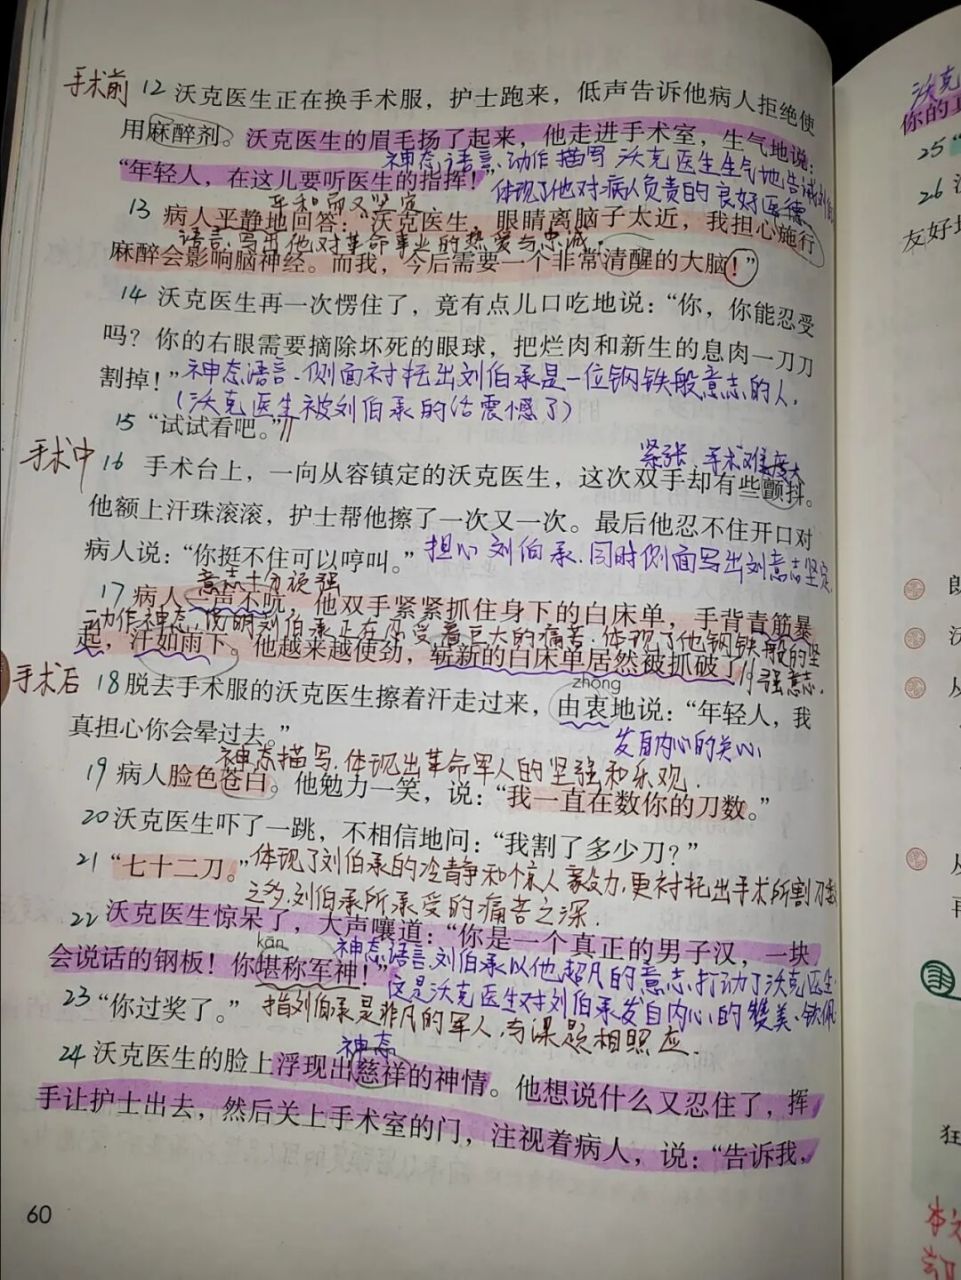 手术前 12 沃克医生正在换手术服，护士跑来，低声告诉他病人拒绝使
用麻醉剂。沃克医生的眉毛扬了起来，他走进手术室，生气地说：
神态、语言、动作描写 沃克医生生气地告诫刘伯
“年轻人，在这儿要听医生的指挥！”
体现了他对病人负责的良好医德
平和而又坚定
13 病人平静地回答：“沃克医生，眼睛离脑子太近，我担心施行
语言、写出他对革命事业的热爱与忠诚。
麻醉会影响脑神经。而我，今后需要一个非常清醒的大脑！”
14 沃克医生再一次愣住了，竟有点儿口吃地说：“你，你能忍受
吗？你的右眼需要摘除坏死的眼球，把烂肉和新生的息肉一刀刀
割掉！”神态、语言、侧面衬托出刘伯承是一位钢铁般意志的人，
（沃克医生被刘伯承的话震憾了）
15 “试试看吧。”
紧张 手术难度大
手术中 16 手术台上，一向从容镇定的沃克医生，这次双手却有些颤抖。
他额上汗珠滚滚，护士帮他擦了一次又一次。最后他忍不住开口对
病人说：“你挺不住可以哼叫。”担心刘伯承、同时侧面写出刘意志坚定
意志十分顽强
17 病人一声不吭，他双手紧紧抓住身下的白床单，手背青筋暴
动作、神态、说明刘伯承正在忍受着巨大的痛苦、体现了他钢铁般的坚
起，汗如雨下。他越来越使劲，崭新的白床单居然被抓破了。
强意志、
zhōng
手术后 18 脱去手术服的沃克医生擦着汗走过来，由衷地说：“年轻人，我
真担心你会晕过去。”
发自内心的关心
神态描写、体现出革命军人的坚强和乐观、
19 病人脸色苍白。他勉力一笑，说：“我一直在数你的刀数。”
20 沃克医生吓了一跳，不相信地问：“我割了多少刀？”
21 “七十二刀。”体现了刘伯承的冷静和惊人毅力，更衬托出手术所割刀数
之多，刘伯承所承受的痛苦之深．
22 沃克医生惊呆了，大声嚷道：“你是一个真正的男子汉，一块
kān
神态、语言、刘伯承以他超凡的意志，打动了沃克医生
会说话的钢板！你堪称军神！”
这是沃克医生对刘伯承发自内心的赞美、钦佩
23 “你过奖了。”指刘伯承是非凡的军人，与课题相照应．
神态
24 沃克医生的脸上浮现出慈祥的神情。他想说什么又忍住了，挥
手让护士出去，然后关上手术室的门，注视着病人，说：“告诉我，
60
沃克
你的
25
26
友好
狂
本文